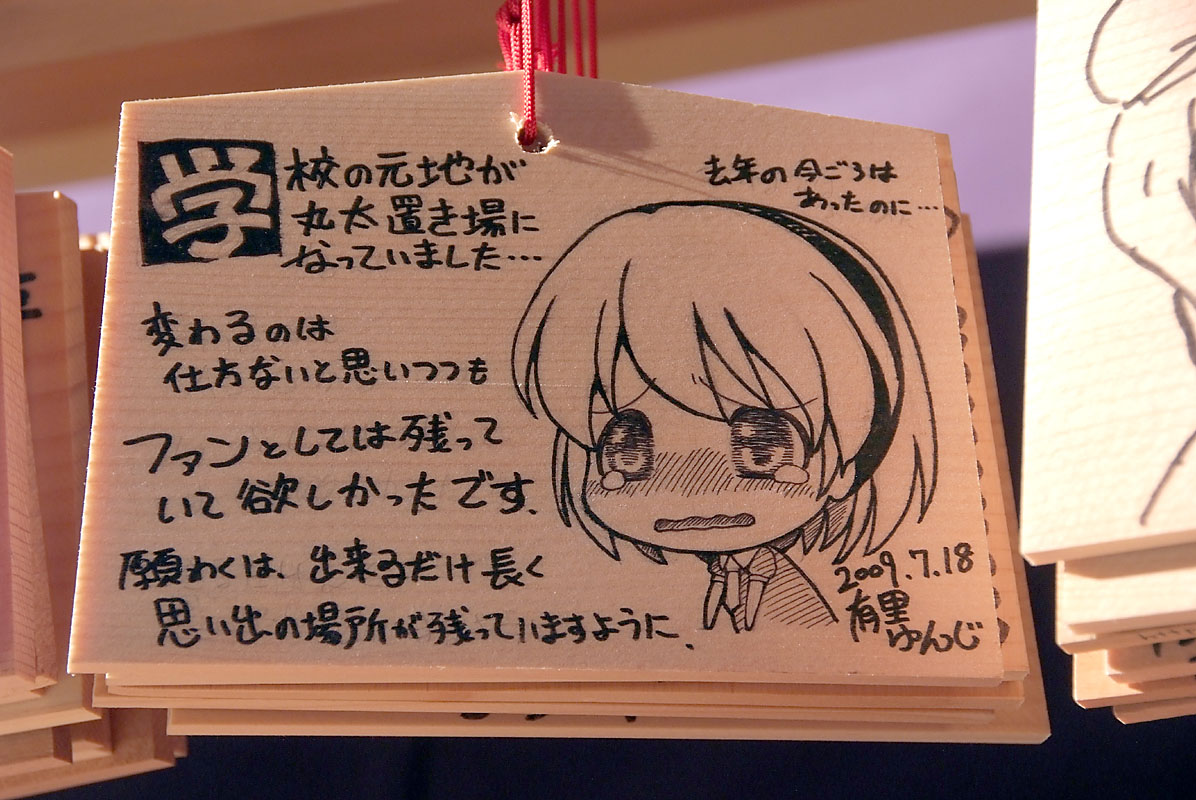 学校の元地が
丸太置き場に
なっていました…
去年の今ごろは
あったのに…
変わるのは
仕方ないと思いつつも
ファンとしては残って
いて欲しかったです、
願わくは、出来るだけ長く
思い出の場所が残っていますように、
2009.7.18
有里
ゆんじ